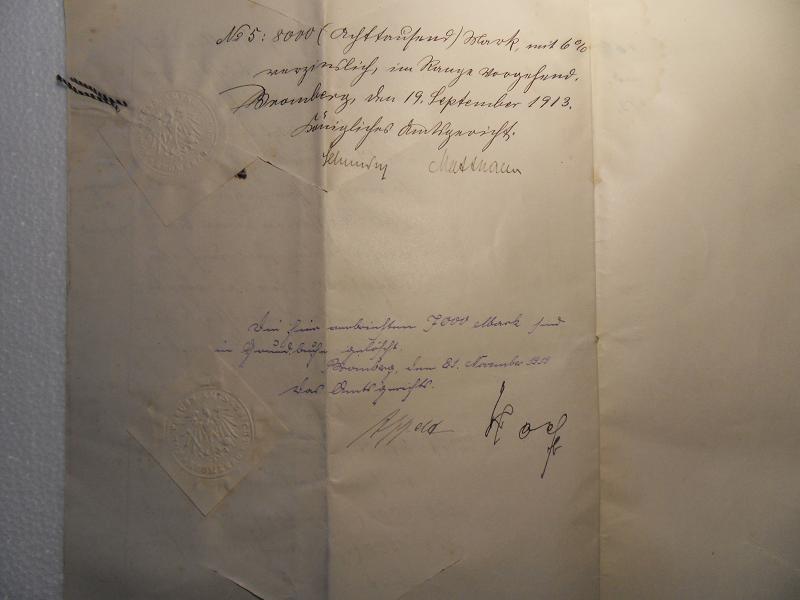 No 5: 8000 (Achttausend) Mark, mit 6%
verzinslich, im Range vorgehend.
Bromberg, den 19. September 1913.
Königliches Amtsgericht.
Die hier verbrieften 7000 Mark sind
im Grundbuche gelöscht.
Bromberg, den 21. November 1919
Das Amtsgericht.